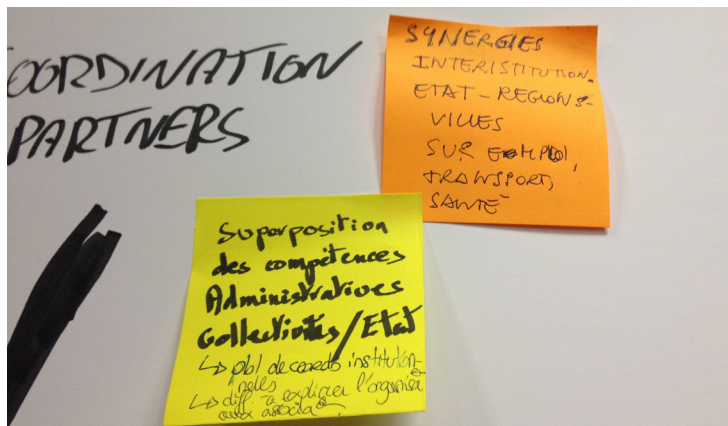 COORDINATION
PARTNERS
SYNERGIES
INTERISTITUTION.
ETAT - REGIONS -
VILLES
SUR EMPLOI,
TRANSPORT,
SANTÉ
Superposition
des compétences
Administratives
Collectivités/Etat
↳ pbl de coordo institution-
nelles
↳ diff. à expliquer l'organisa°
aux associa°.